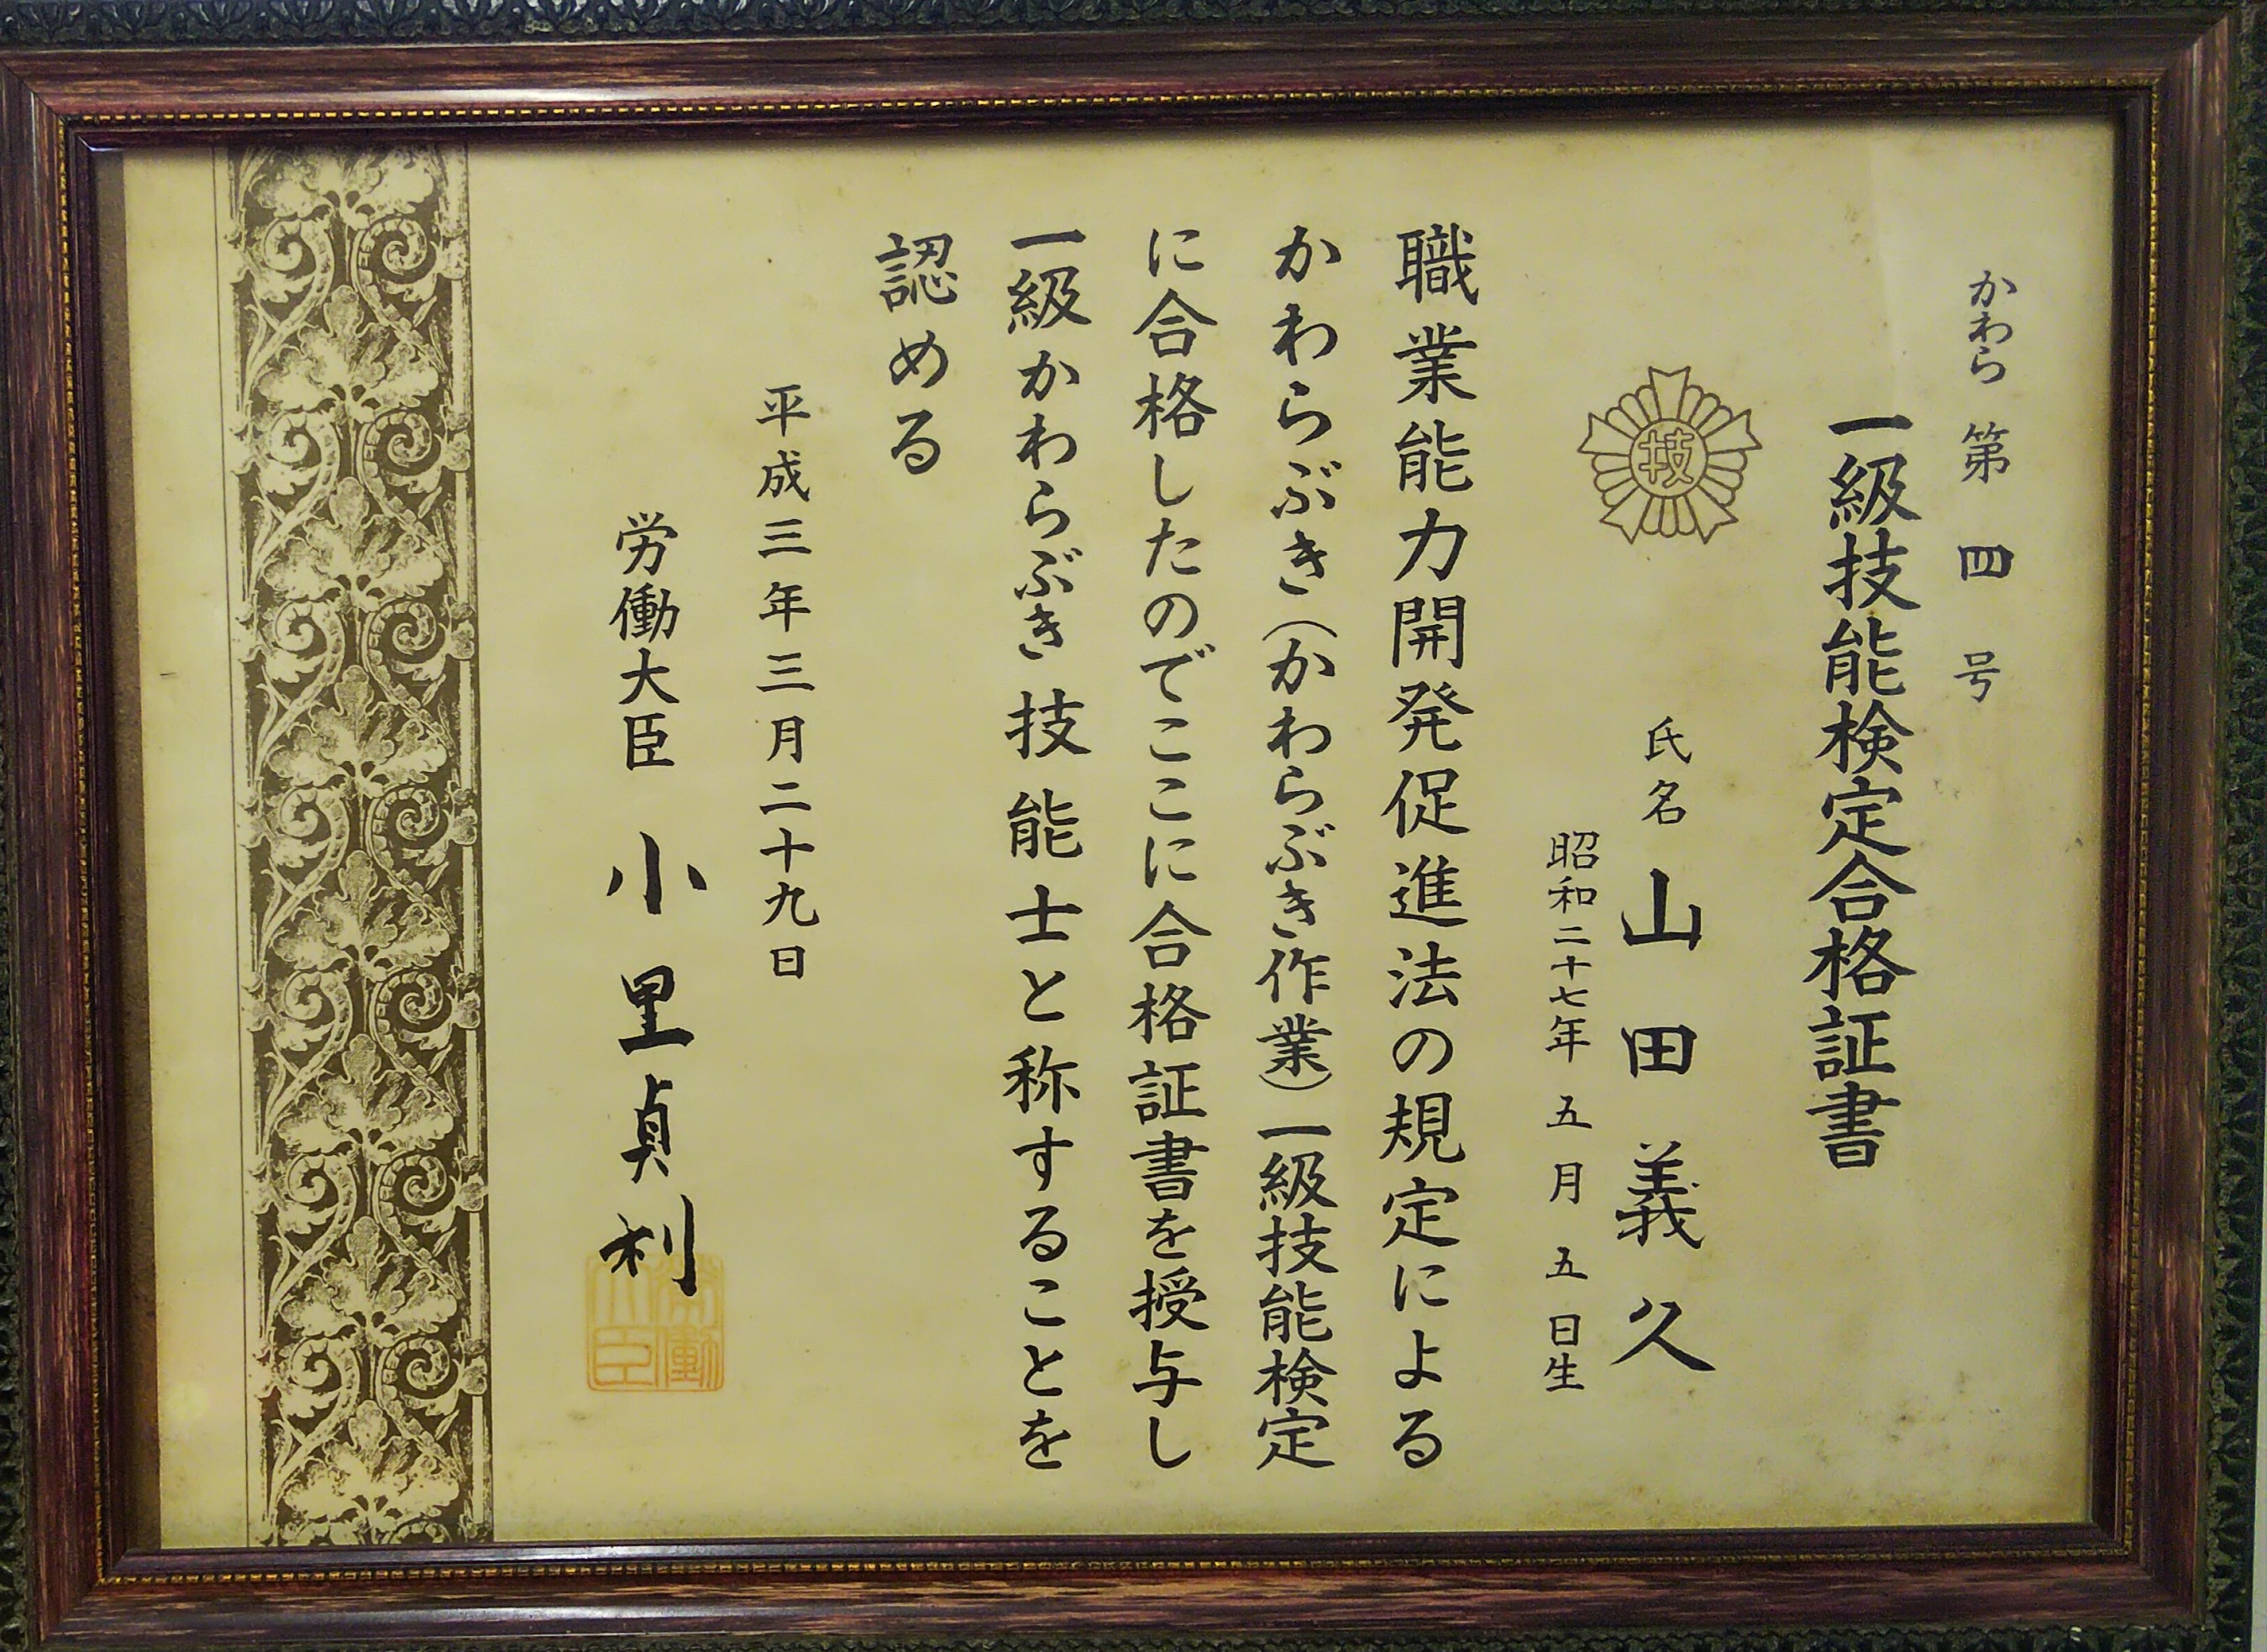 かわら 第四号
一級技能検定合格証書
技
氏名 山田義久
昭和二十七年五月五日生
職業能力開発促進法の規定による
かわらぶき(かわらぶき作業)一級技能検定
に合格したのでここに合格証書を授与し
一級かわらぶき技能士と称することを
認める
平成三年三月二十九日
労働大臣 小里貞利
労働大臣